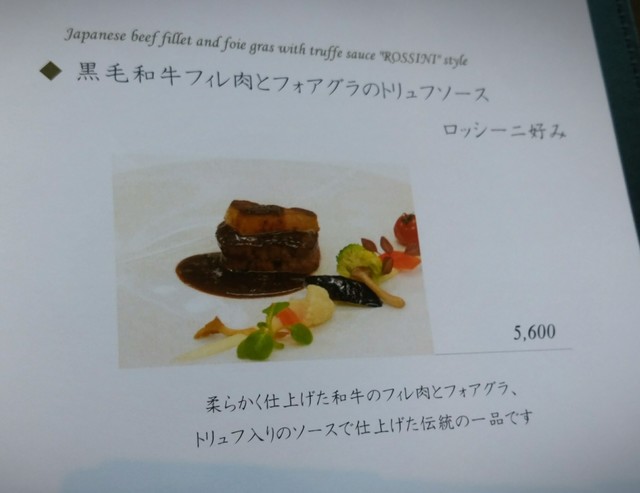 Japanese beef fillet and foie gras with truffe sauce "ROSSINI" style
◆ 黒毛和牛フィレ肉とフォアグラのトリュフソース
ロッシーニ好み
5,600
柔らかく仕上げた和牛のフィレ肉とフォアグラ、
トリュフ入りのソースで仕上げた伝統の一品です